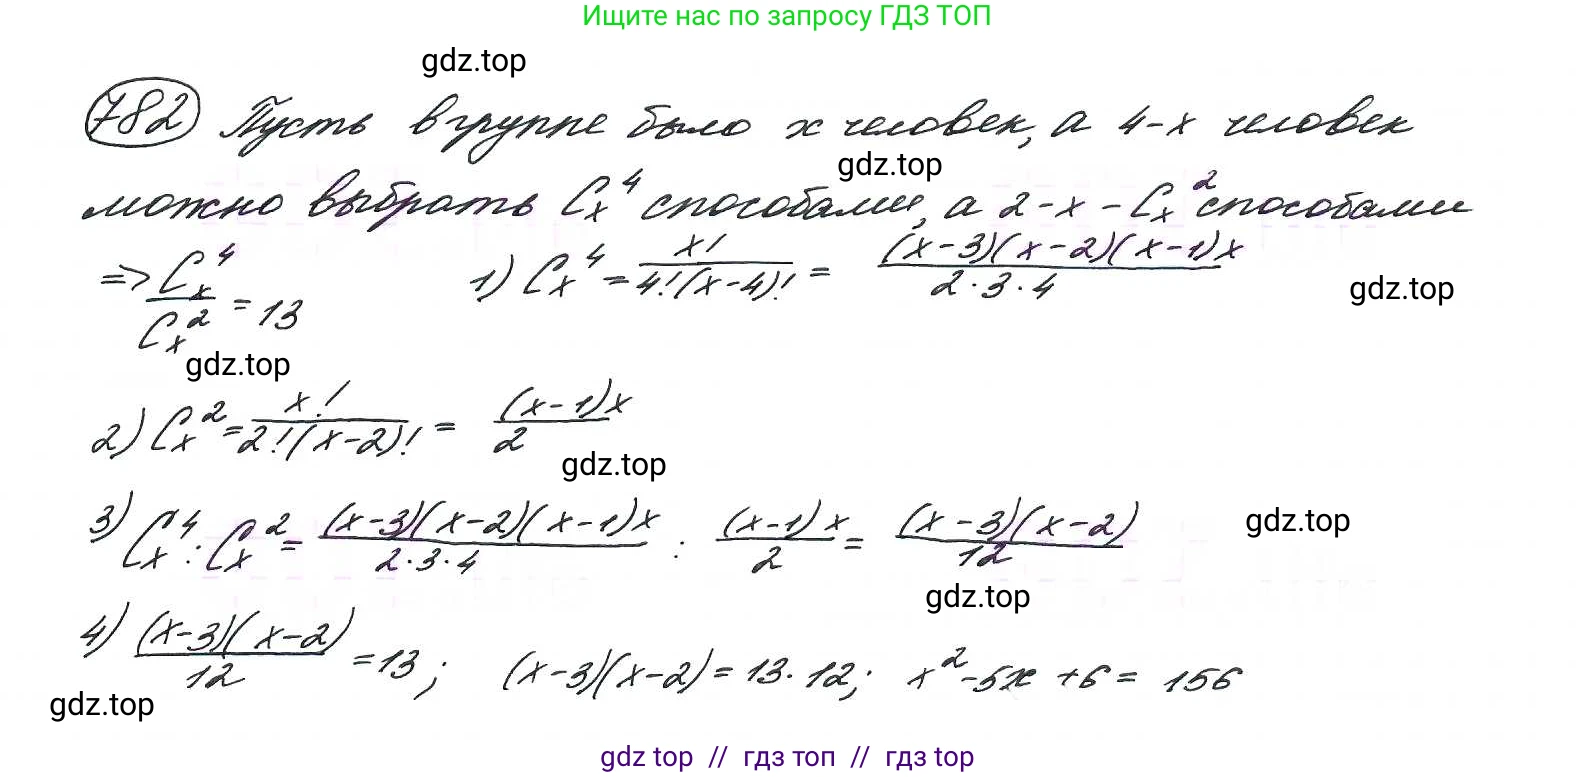 Ищите нас по запросу ГДЗ ТОП
gdz.top
782 Пусть в группе было x человек, а 4-x человек
gdz.top
можно выбрать C_x^4 способами, а 2-x - C_x^2 способами
=> C_x^4 / C_x^2 = 13 1) C_x^4 = x! / 4!(x-4)! = (x-3)(x-2)(x-1)x / 2·3·4
gdz.top
gdz.top
2) C_x^2 = x! / 2!(x-2)! = (x-1)x / 2
gdz.top
3) C_x^4 : C_x^2 = (x-3)(x-2)(x-1)x / 2·3·4 : (x-1)x / 2 = (x-3)(x-2) / 12
gdz.top
gdz.top
4) (x-3)(x-2) / 12 = 13; (x-3)(x-2) = 13·12; x^2-5x+6 = 156
gdz.top
gdz top // гдз топ // гдз top